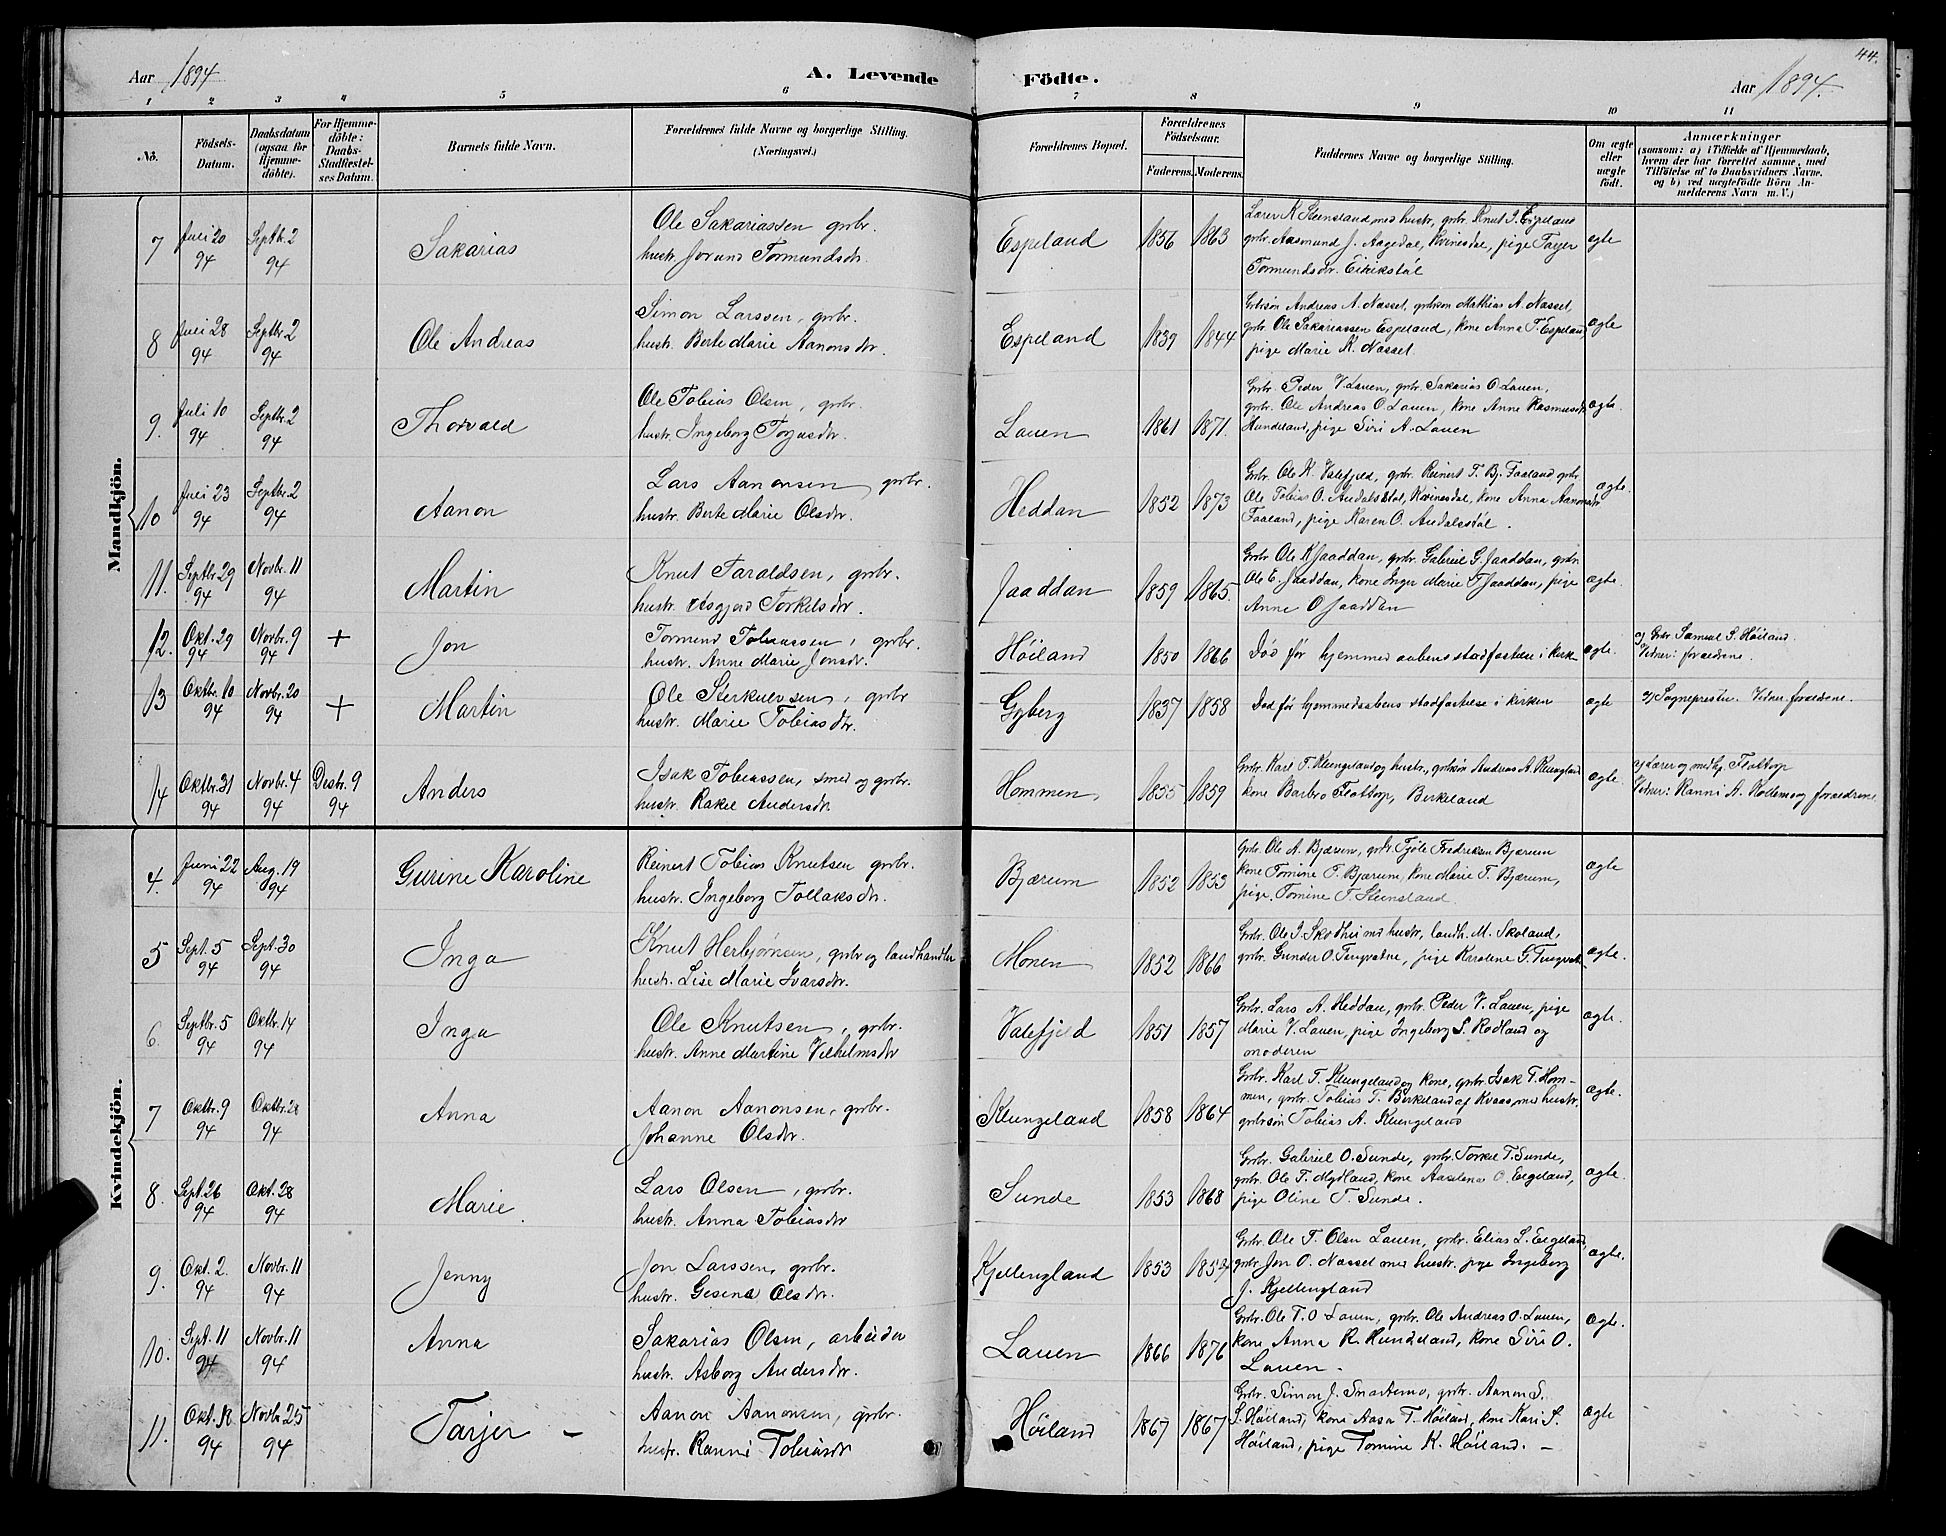 44.
Aar 1894
A. Levende Födte.
Aar 1894.
1 2 3 4 5 6 7 8 9 10 11
No.
Födsels-Datum.
Daabsdatum (ogsaa for Hjemme-döbte).
For Hjemme-döbte: Daabs-Stadfæstel-ses Datum.
Barnets fulde Navn.
Forældrenes fulde Navne og borgerlige Stilling. (Næringsvei.)
Forældrenes Bopæl.
Forældrenes Födselsaar.
Faderens. Moderens.
Faddernes Navne og borgerlige Stilling.
Om ægte eller uægte födt.
Anmærkninger
(saasom: a) i Tilfælde af Hjemmedaab,
hvem der har forrettet samme, med
Tilföielse af to Daabsvidners Navne.
og b) ved uægtefödte Börn An-
melderens Navn m. V.)
Mandkjön.
7 Juli 20 94 Septbr. 2 94 Sakarias
Ole Sakariassen grbr.
hustr. Jorund Tormundsdr.
Espeland 1856 1863
Lærer K Steensland med hustr, grbr. Knut T. Espeland
grbr. Aasmund J. Aagedal, Kvinesdal, pige Tarjer
Tormundsdr. Eirikstøl
ægte
8 Juli 28 94 Septbr. 2 94 Ole Andreas
Simon Larssen, grbr.
hustr. Berte Marie Aanonsdr.
Espeland 1839 1844
Grbrsøn Andreas A. Næssel, grbrsøn Mathias A. Næssel,
grbr. Ole Sakariassen Espeland, kone Anna T. Espeland,
pige Marie K. Næssel.
ægte
9. Juli 10 94 Septbr. 2 94 Thorvald
Ole Tobias Olsen, grbr.
hustr. Ingeborg Torjusdr.
Lauen 1861 1871.
Grbr. Peder V. Lauen, grbr. Sakarias O Lauen,
grbr. Ole Andreas O. Lauen, kone Anne Rasmusdr.
Hundeland, pige Siri A. Lauen
ægte.
10 Juli 23 94 Septbr. 2 94 Aanon
Lars Aanonsen grbr.
hustr. Berte Marie Olsdr.
Heddan 1852 1873
Grbr. Ole K. Valefjeld, grbr. Reinert T. Bj. Faaland grbr.
Ole Tobias O. Andalsstøl, Kvinesdal, kone Anna Aanonsdr
Faaland, pige Karen O. Andalsstøl.
ægte.
11. Septbr. 29 94 Novbr. 11 94 Martin
Knut Taraldsen, grbr.
hustr. Asgjerd Torkelsdr.
Jaaddan 1859 1865.
Grbr Ole K Jaaddan, grbr. Gabriel G. Jaaddan, grbr.
Ole E. Jaaddan, kone Inger Marie T Jaaddan, pige
Anne O Jaaddan
ægte.
12. Okt. 29 94 Novbr. 9 94 + Jon
Tormund Tobiassen, grbr.
hustr. Anne Marie Jonsdr.
Høiland 1850 1866
Død før hjemmedaabens stadfæstelse i kirk
ægte.
a) Grbr Samuel S. Høiland.
Vidner: forældrene.
13 Oktbr. 10 94 Novbr. 20 94 + Martin
Ole Sterkulvsen, grbr
hustr. Marie Tobiasdr.
Gyberg 1837 1858
Død før hjemmedaabens stadfæstelse i kirken
ægte
a) Sognepresten. Vidner. forældrene.
14 Oktbr. 31 94 Novbr. 4 94 Desbr. 9 94 Anders
Isak Tobiassen, smed og grbr.
hustr. Rakel Andersdr.
Hommen 1855 1859
Grbr. Karl T. Klungeland og hustr., grbrsøn Andreas A. Klungland
kone Barbro Flottorp, Birkeland
ægte.
a) Lærer og medhj. Flottorp
Vidner: Ranni A. Kollemo og forældrene.
Kvindekjön.
4. Juni 22 94 Aug. 19 94 Gurine Karoline
Reinert Tobias Knutsen grbr.
hustr. Ingeborg Tollaksdr.
Bjærum 1852 1853
Grbr. Ole A. Bjærum, grbr. Tjøle Fredriksen Bjærum
kone Tomine T. Bjærum, kone Marie T. Bjærum,
pige. Tomine T. Steensland
ægte
5 Sept. 5 94 Sept. 30 94 Inga
Knut Herbjørnsen, grbr og landhandler
hustr. Lise Marie Ivarsdr.
Monen 1852 1866
Grbr. Ole I. Skodhei med hustr, landh. M. Skoland,
grbr. Gunder O. Tengvatne, pige Karoline G. Tengvatn
ægte.
6. Septbr. 5 94 Oktbr. 14 94 Inga
Ole Knutsen, grbr.
hustr. Anne Martine Vilhelmsdr
Valefjeld 1851 1857
Grbr. Lars A. Heddan, grbr. Peder V. Lauen, pige
Marie V. Lauen, pige Ingeborg S. Rødland og
moderen
ægte.
7 Oktbr. 9 94 Oktbr. 28 94 Anna
Aanon Aanonsen, grbr.
Johanne Olsdr.
Klungeland 1858 1864
Grbr. Karl T. Klungeland og kone, grbr. Isak T. Hom-
men, grbr. Tobias T. Birkeland af Kvaas, med hustr.
grbrsøn Tobias A. Klungeland
ægte.
8. Sept. 26 94 Okt. 28 94 Marie.
Lars Olsen, grbr.
hustr. Anna Tobiasdr
Sunde 1853 1868
Grbr. Gabriel O. Sunde, grbr. Torkel T. Sunde,
grbr. Ole T. Mydland, kone Aaselena O. Eegeland,
pige Oline T. Sunde.
ægte.
9. Okt. 2. 94 Novbr. 11 94 Jenny
Jon Larssen, grbr.
hustr. Gesina Olsdr.
Kjellengland 1853
Grbr. Ole T. Olsen Lauen, grbr. Elias L. Eegeland,
grbr Jon O. Næssel med hustr. pige Ingeborg
J. Kjellengland
ægte.
10. Sept. 11 94 Novbr. 11 94 Anna
Sakarias Olsen, arbeider
hustr. Asborg Andersdr.
Lauen 1866 1876
Grbr. Ole T. O Lauen, grbr. Ole Andreas O. Lauen,
kone Anna R. Hundeland, kone Siri O.
Lauen -
ægte.
11. Okt. 12. 94 Novbr 25 94 Tarjer -
Aanon Aanonsen, grbr.
hustr. Ranni Tobiasdr
Høiland 1867 1867
Grbr. Simon J. Snartemo, grbr. Aanon S.
S. Høiland, kone Aasa T. Høiland, kone Kari S.
Høiland, pige Tomine K. Høiland. -
ægte